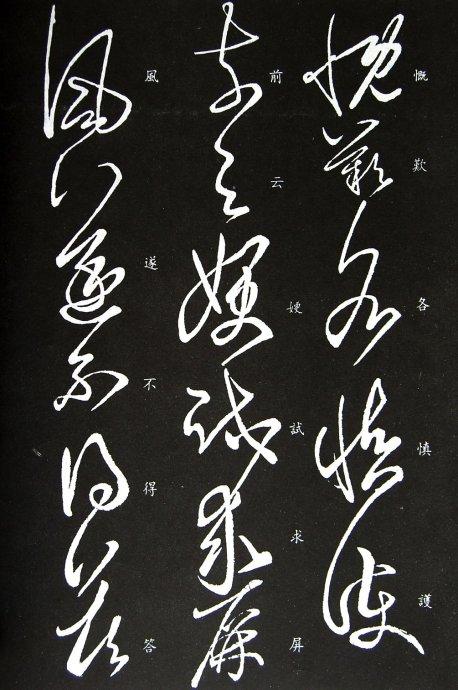 慨歎各慎護
前云㛐試求屏
風遂不得答